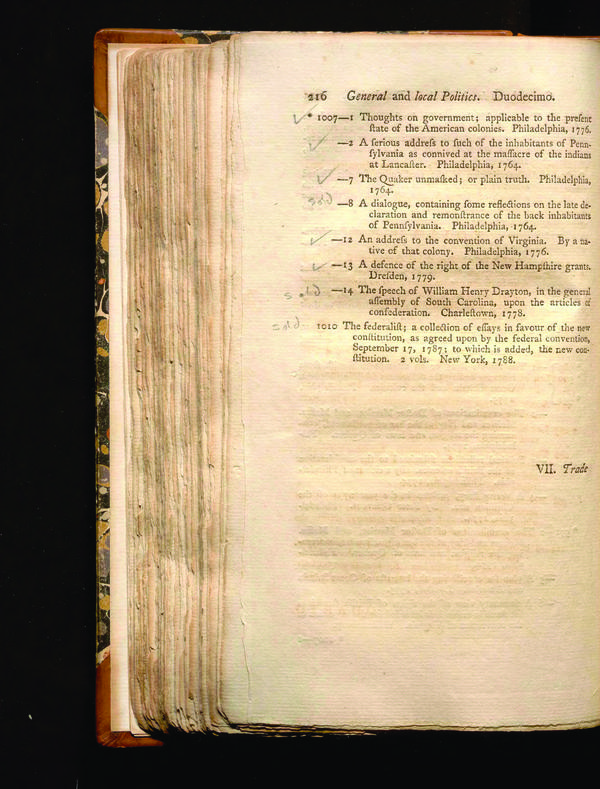 216 General and local Politics. Duodecimo.
* 1007—1 Thoughts on government; applicable to the preſent
ſtate of the American colonies. Philadelphia, 1776.
—2 A ſerious addreſs to ſuch of the inhabitants of Penn-
ſylvania as connived at the maſſacre of the indians
at Lancaſter. Philadelphia, 1764.
—7 The Quaker unmaſked; or plain truth. Philadelphia,
1764.
sold —8 A dialogue, containing ſome reflections on the late de-
claration and remonſtrance of the back inhabitants
of Pennſylvania. Philadelphia, 1764.
—12 An addreſs to the convention of Virginia. By a na-
tive of that colony. Philadelphia, 1776.
—13 A defence of the right of the New Hampſhire grants.
Dreſden, 1779.
sold —14 The ſpeech of William Henry Drayton, in the general
aſſembly of South Carolina, upon the articles of
confederation. Charleſtown, 1778.
sold 1010 The federaliſt; a collection of eſſays in favour of the new
conſtitution, as agreed upon by the federal convention,
September 17, 1787; to which is added, the new con-
ſtitution. 2 vols. New York, 1788.
VII. Trade